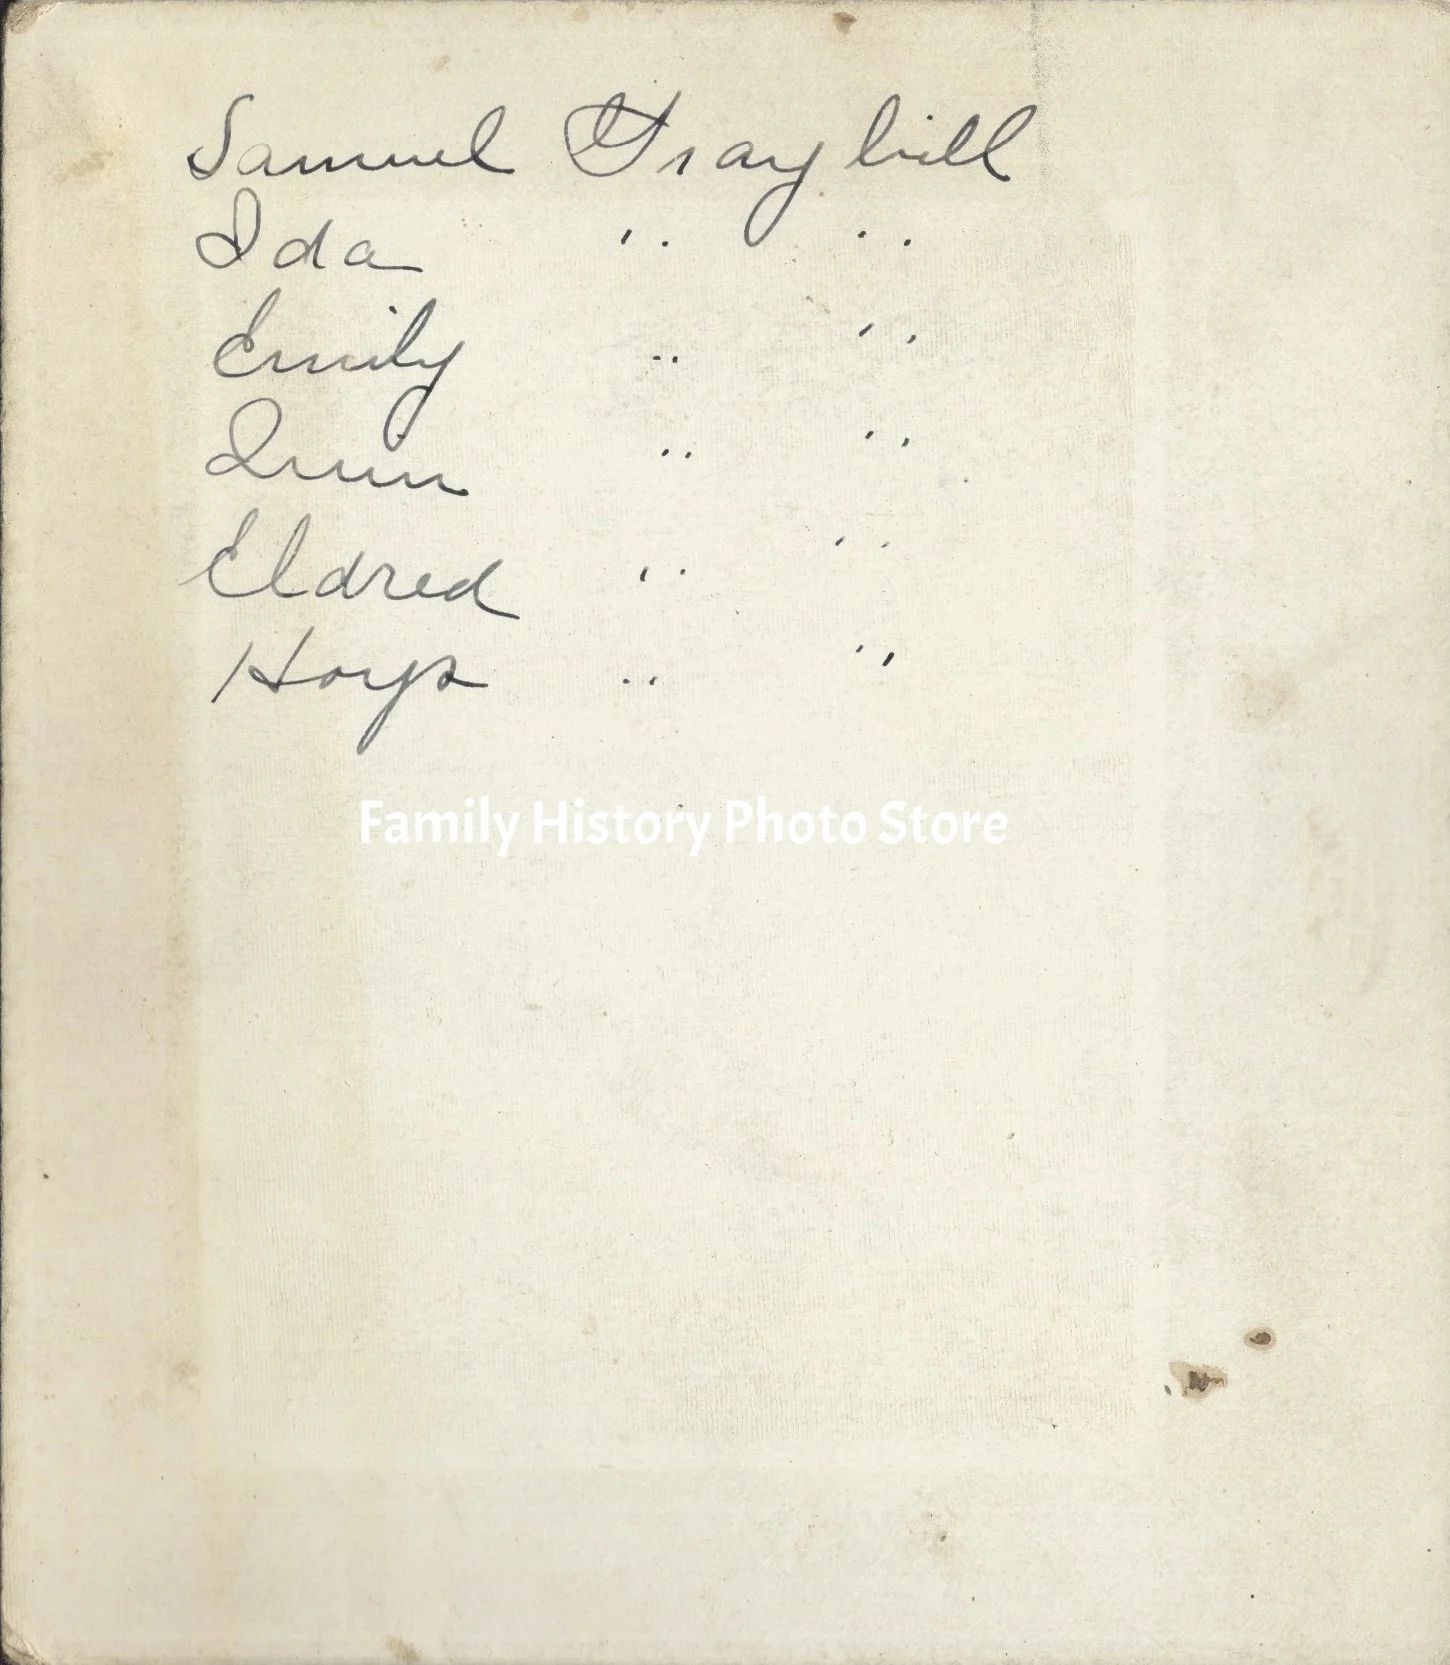 Samuel Graybill
Ida " "
Emily " "
" "
Eldred " "
" "
Family History Photo Store